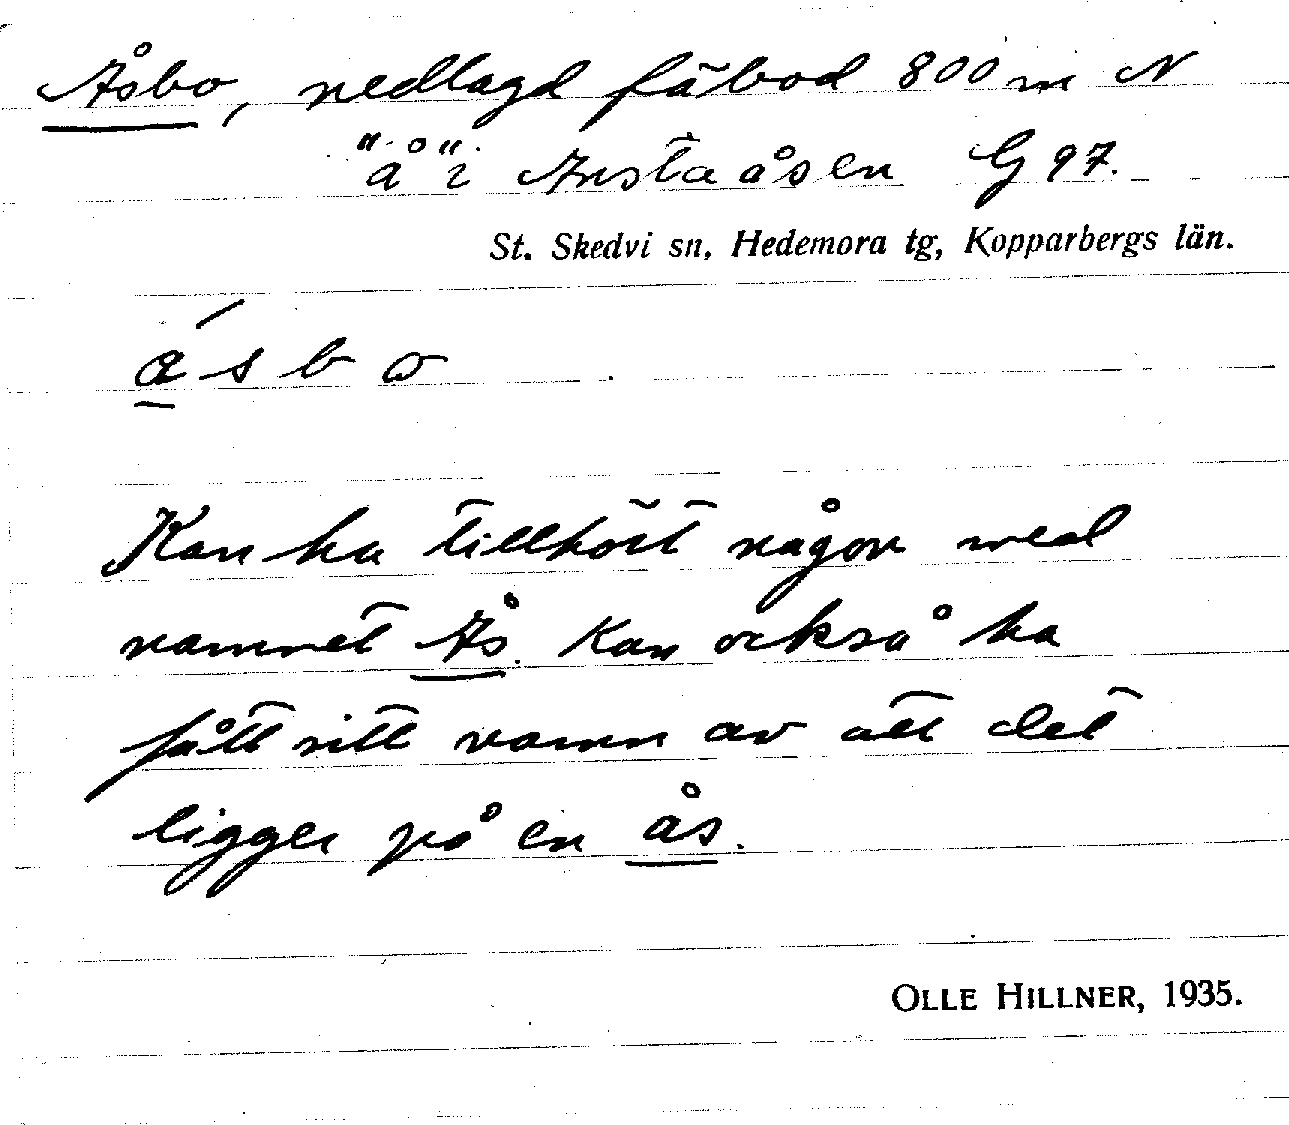 Åsbo, nedlagd fäbod 800 m N
"å" i Arstaåsen G 97.
St. Skedvi sn, Hedemora tg, Kopparbergs län.
ásbo
Kan ha tillhört någon med
namnet Ås. Kan också ha
fått sitt namn av att det
ligger på en ås.
OLLE HILLNER, 1935.